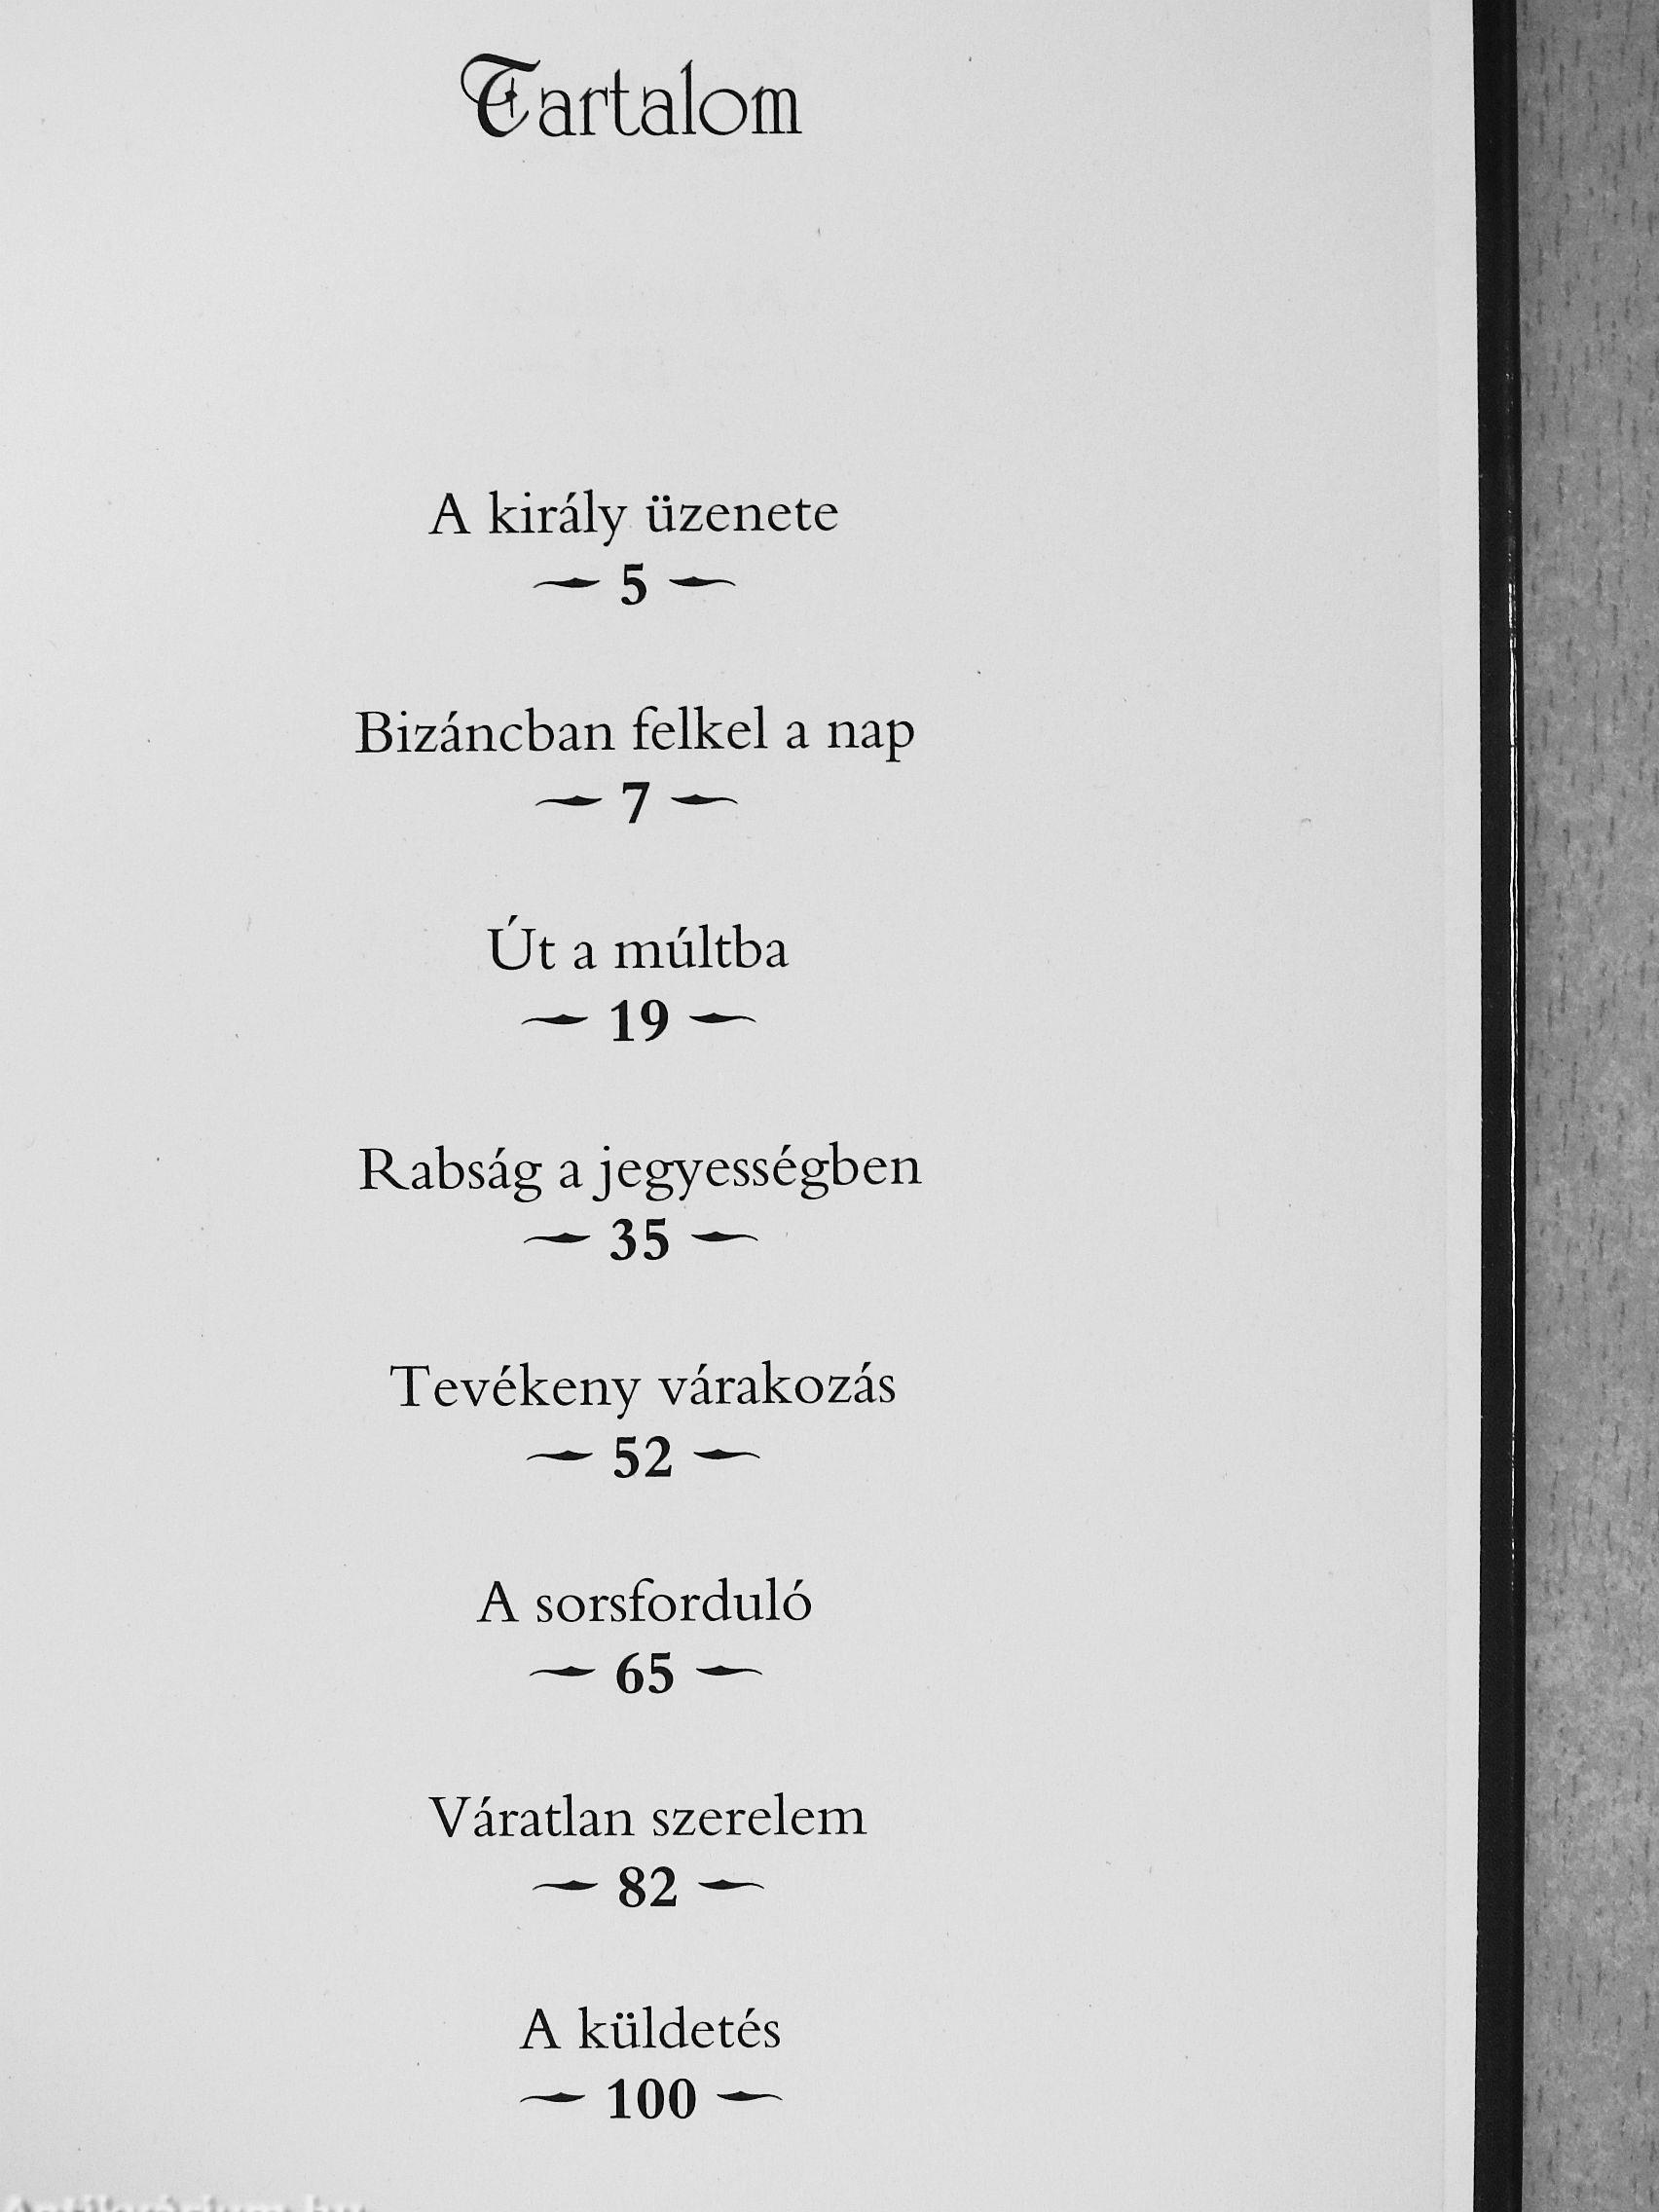 Tartalom
A király üzenete
5
Bizáncban felkel a nap
7
Út a múltba
19
Rabság a jegyességben
35
Tevékeny várakozás
52
A sorsforduló
65
Váratlan szerelem
82
A küldetés
100